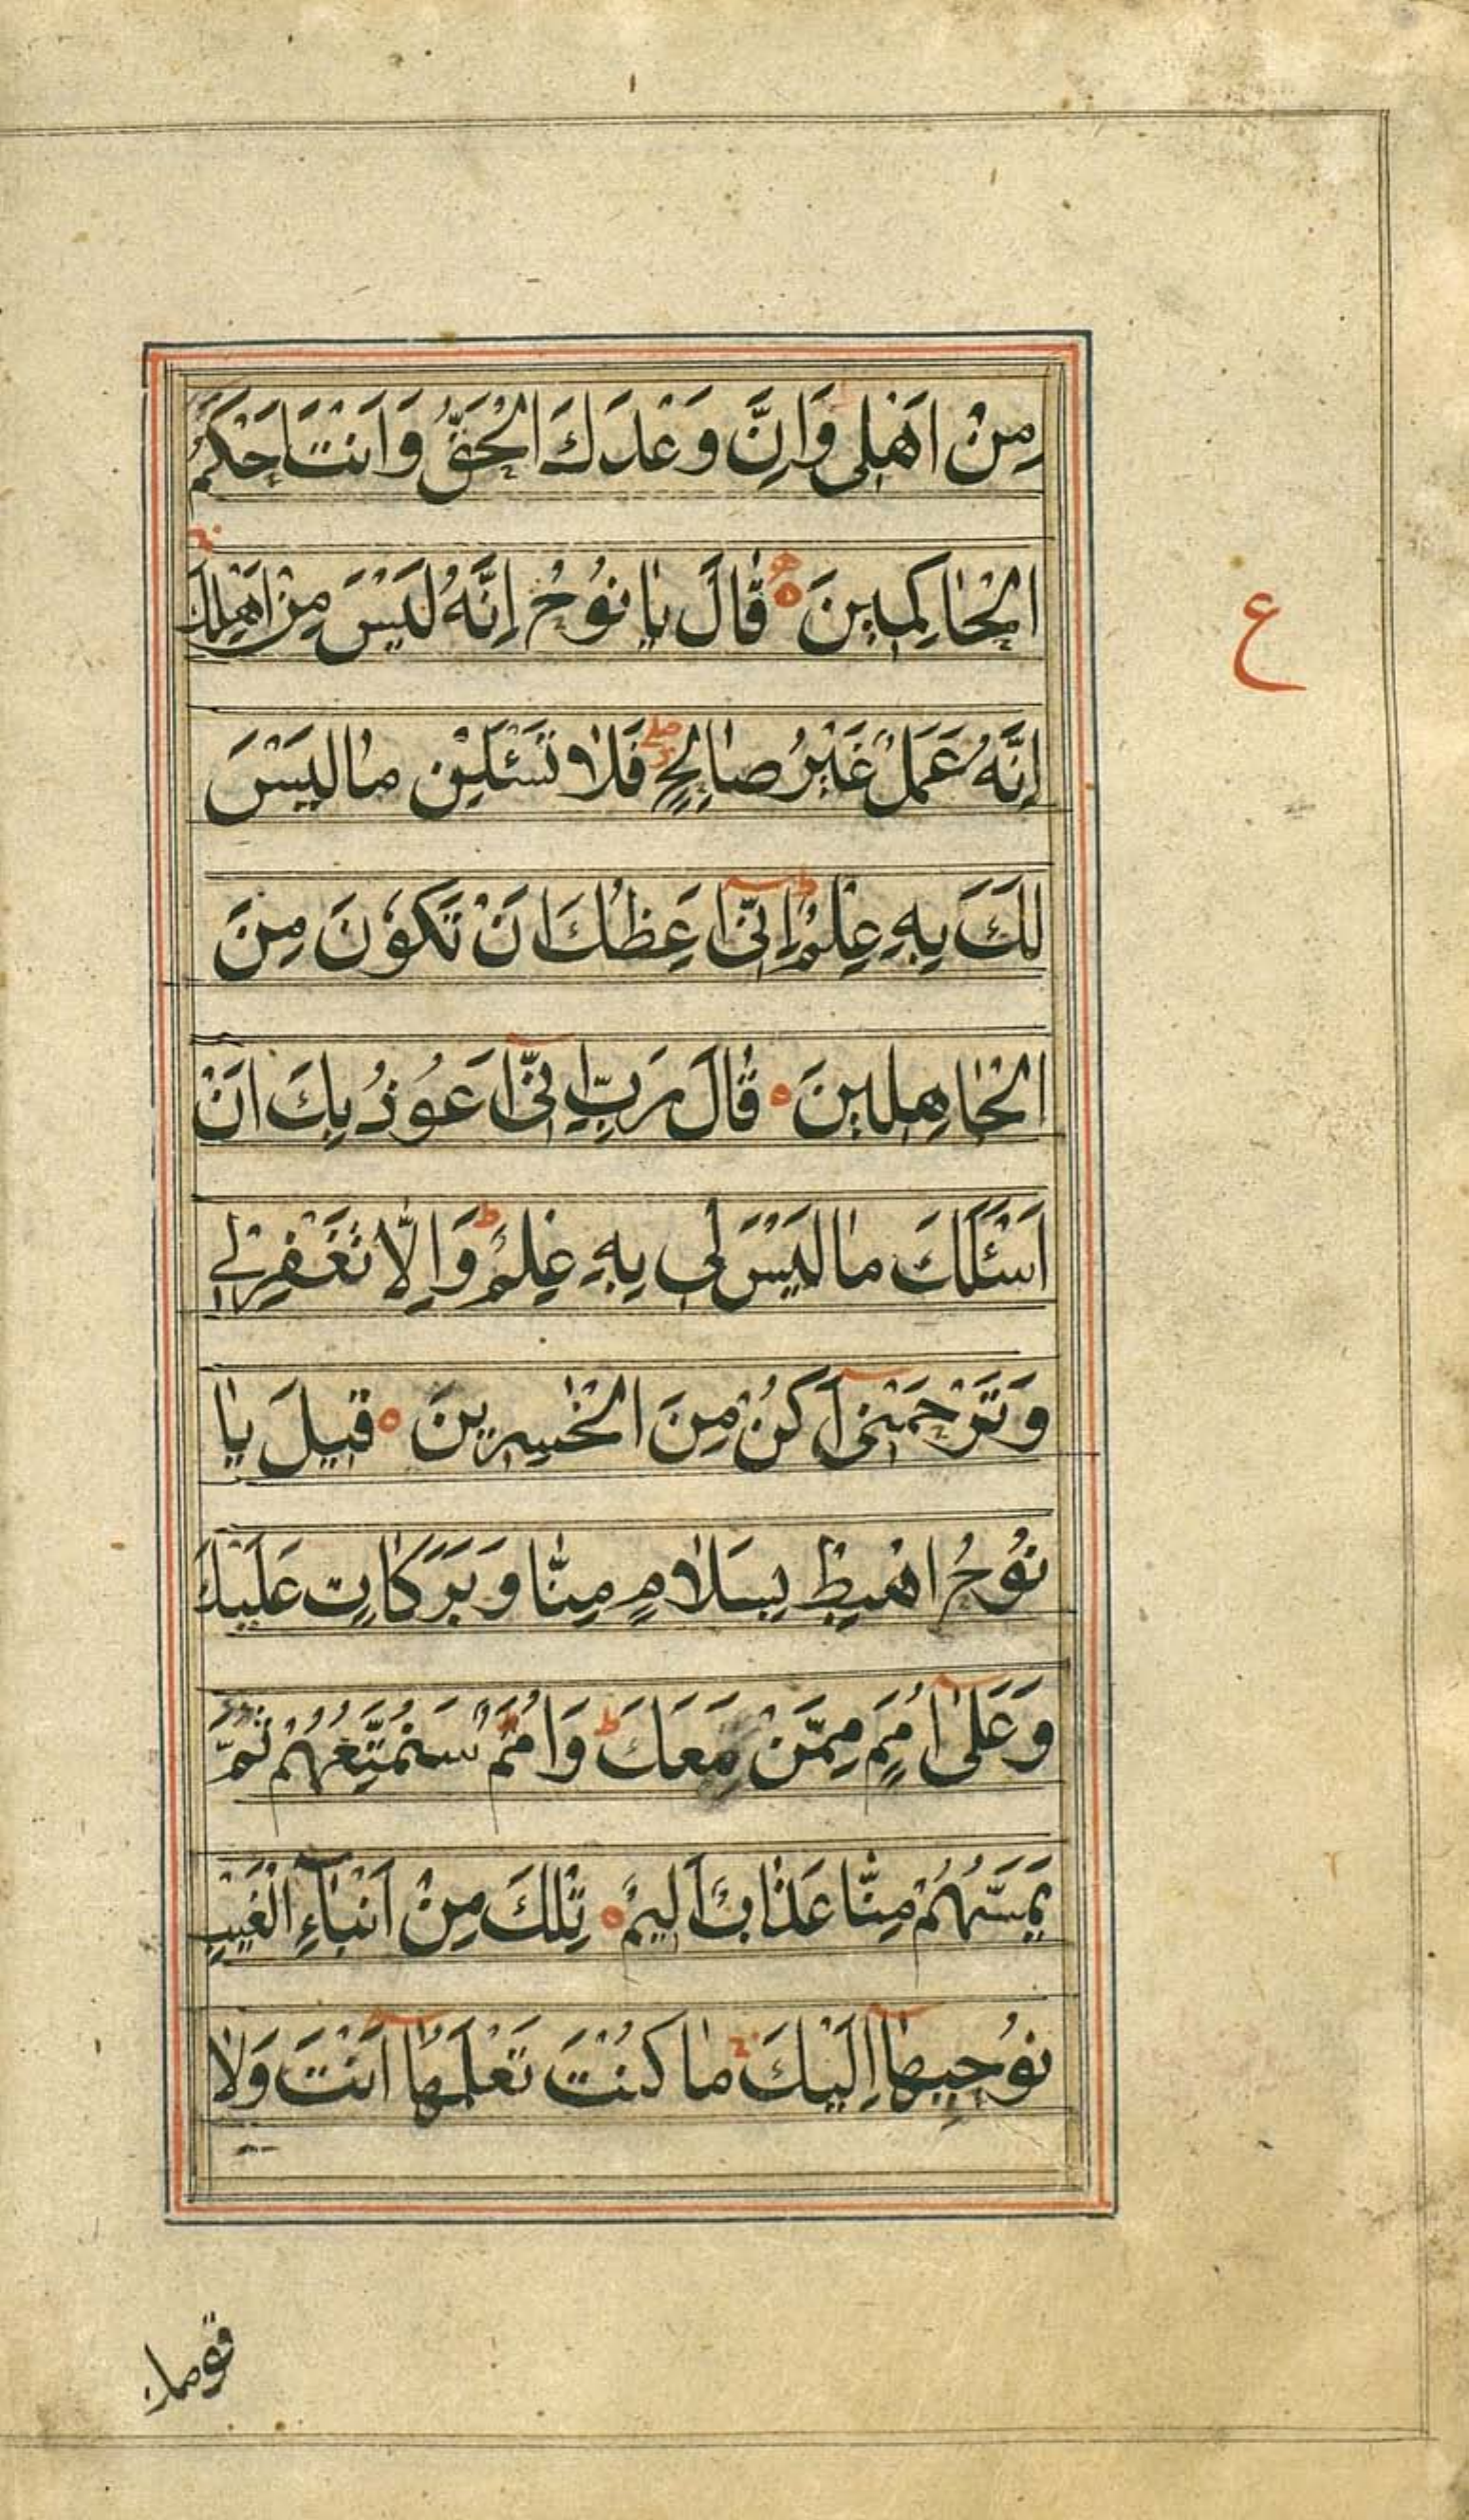 مِنْ اَهْلِى وَاِنَّ وَعْدَكَ الْحَقُّ وَاَنْتَ اَحْكَمُ
الْحَاكِمِينَ ۝ قَالَ يَا نُوْحُ اِنَّهُ لَيْسَ مِنْ اَهْلِكَ
ع
اِنَّهُ عَمَلٌ غَيْرُ صَالِحٍ فَلَا تَسْئَلْنِ مَا لَيْسَ
لَكَ بِهِ عِلْمٌ ط اِنِّىٓ اَعِظُكَ اَنْ تَكُوْنَ مِنَ
الْجَاهِلِينَ ۝ قَالَ رَبِّ اِنِّىٓ اَعُوْذُ بِكَ اَنْ
اَسْئَلَكَ مَا لَيْسَ لِى بِهِ عِلْمٌ ط وَاِلَّا تَغْفِرْ لِى
وَتَرْحَمْنِىٓ اَكُنْ مِنَ الْخٰسِرِينَ ۝ قِيلَ يَا
نُوْحُ اهْبِطْ بِسَلَامٍ مِنَّا وَبَرَكَاتٍ عَلَيْكَ
وَعَلٰىٓ اُمَمٍ مِمَّنْ مَعَكَ ط وَاُمَمٌ سَنُمَتِّعُهُمْ ثُمَّ
يَمَسُّهُمْ مِنَّا عَذَابٌ اَلِيمٌ ۝ تِلْكَ مِنْ اَنْبَآءِ الْغَيْبِ
نُوْحِيهَآ اِلَيْكَ مَا كُنْتَ تَعْلَمُهَآ اَنْتَ وَلَا
قومك